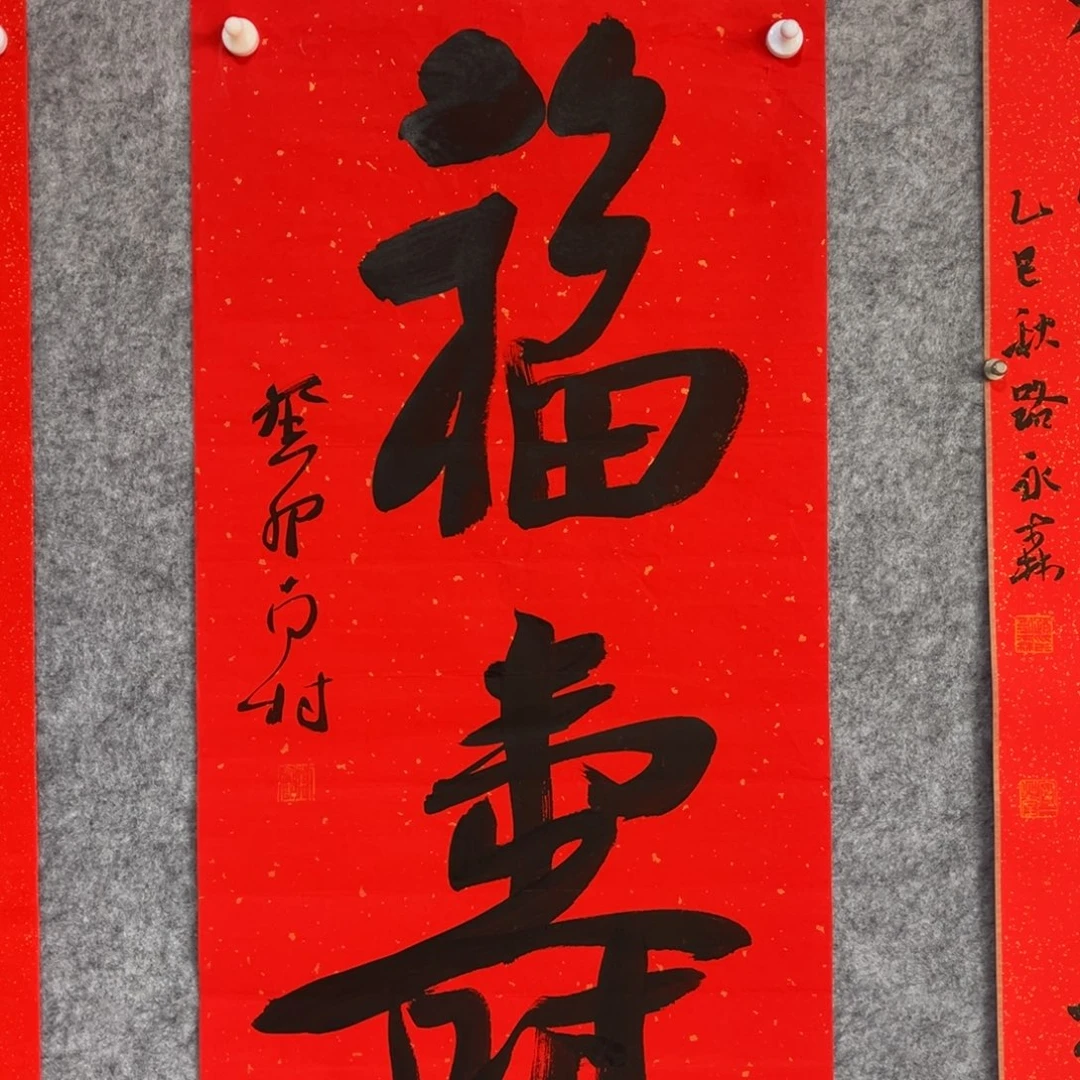 福寿
癸卯方村
乙巳秋路永森